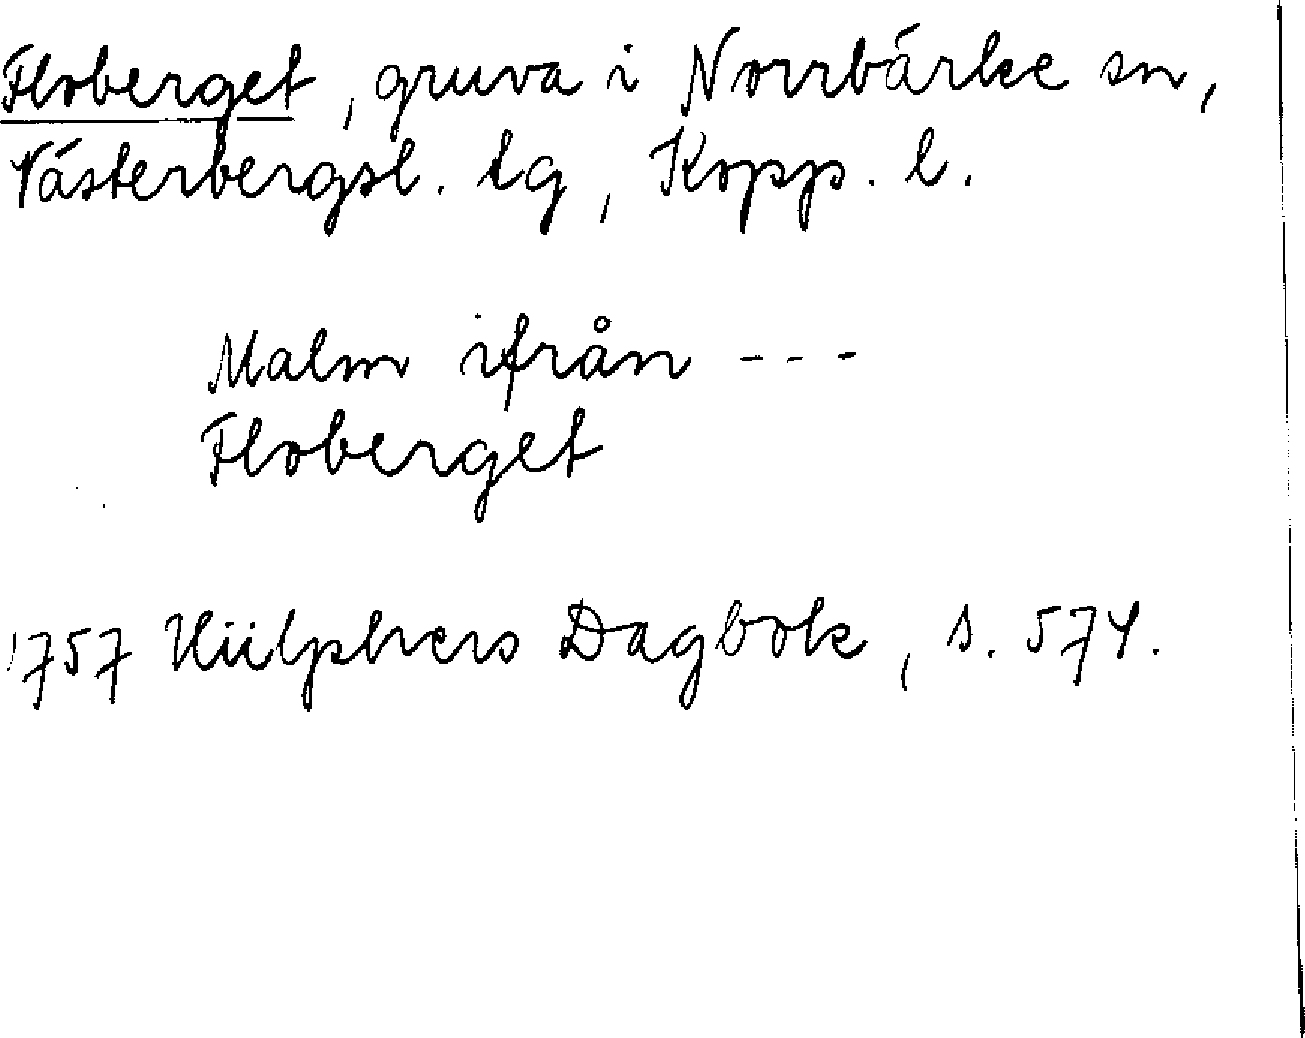 Floberget, gruva i Norrbärke sn,
Västerbergsl. tg, Kopp. l.
Malm ifrån ---
Floberget
1757 Hülphers Dagbok, s. 574.